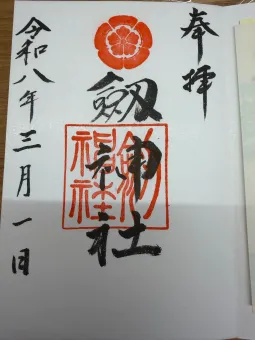 奉拝
劔神社
劔神社
令和八年三月一日